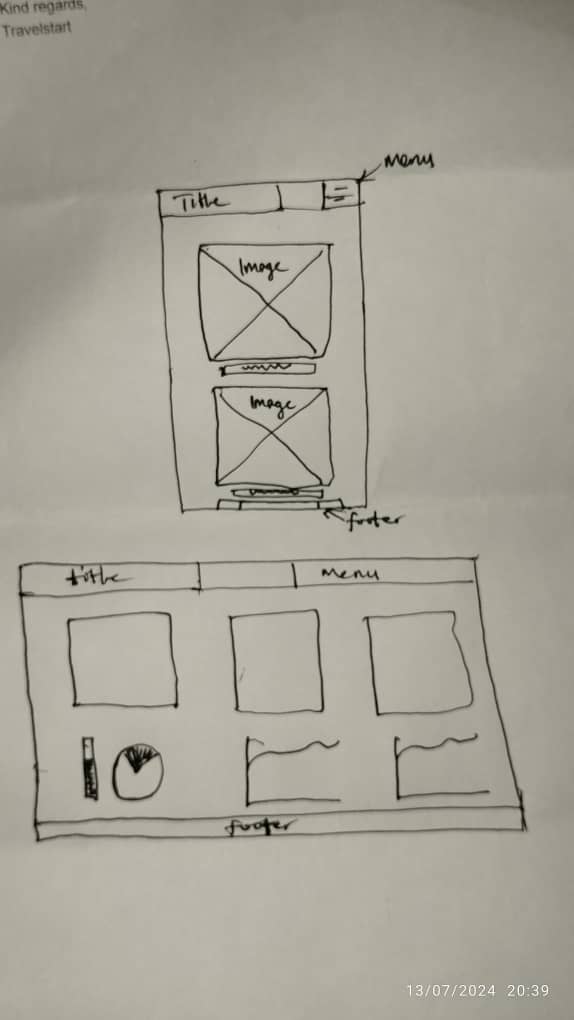 Kind regards,
Travelstart
Menu
Title
Image
Image
footer
title
Menu
footer
13/07/2024 20:39